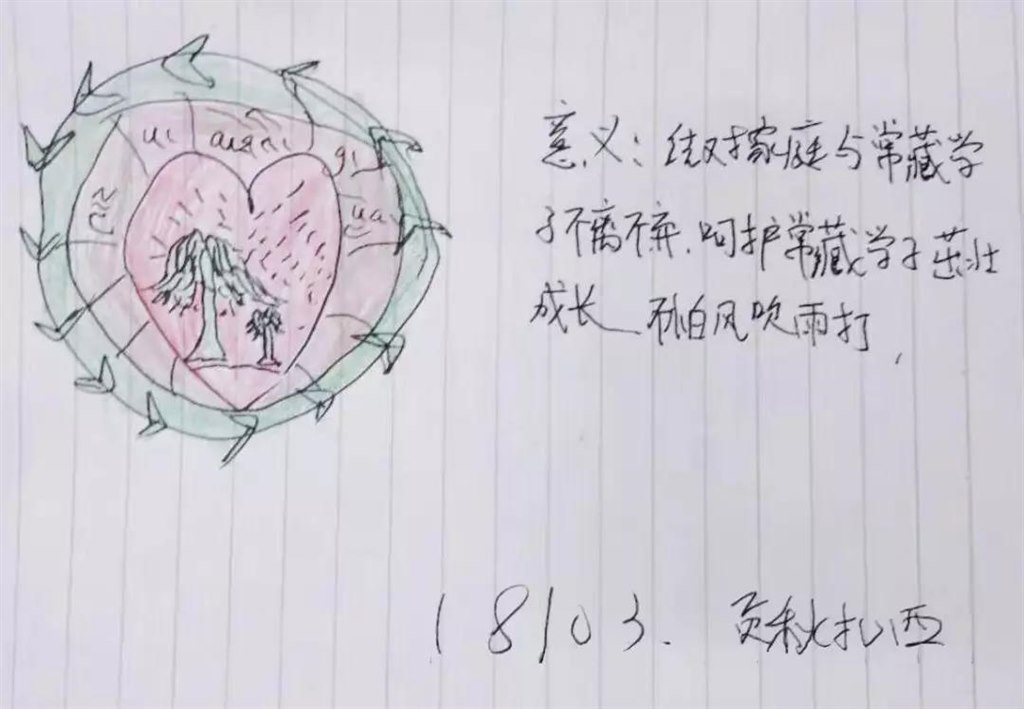 意义：结对家庭与常藏学
子不离不弃，呵护常藏学子茁壮
成长 不怕风吹雨打，
18103. 贡秋扎西